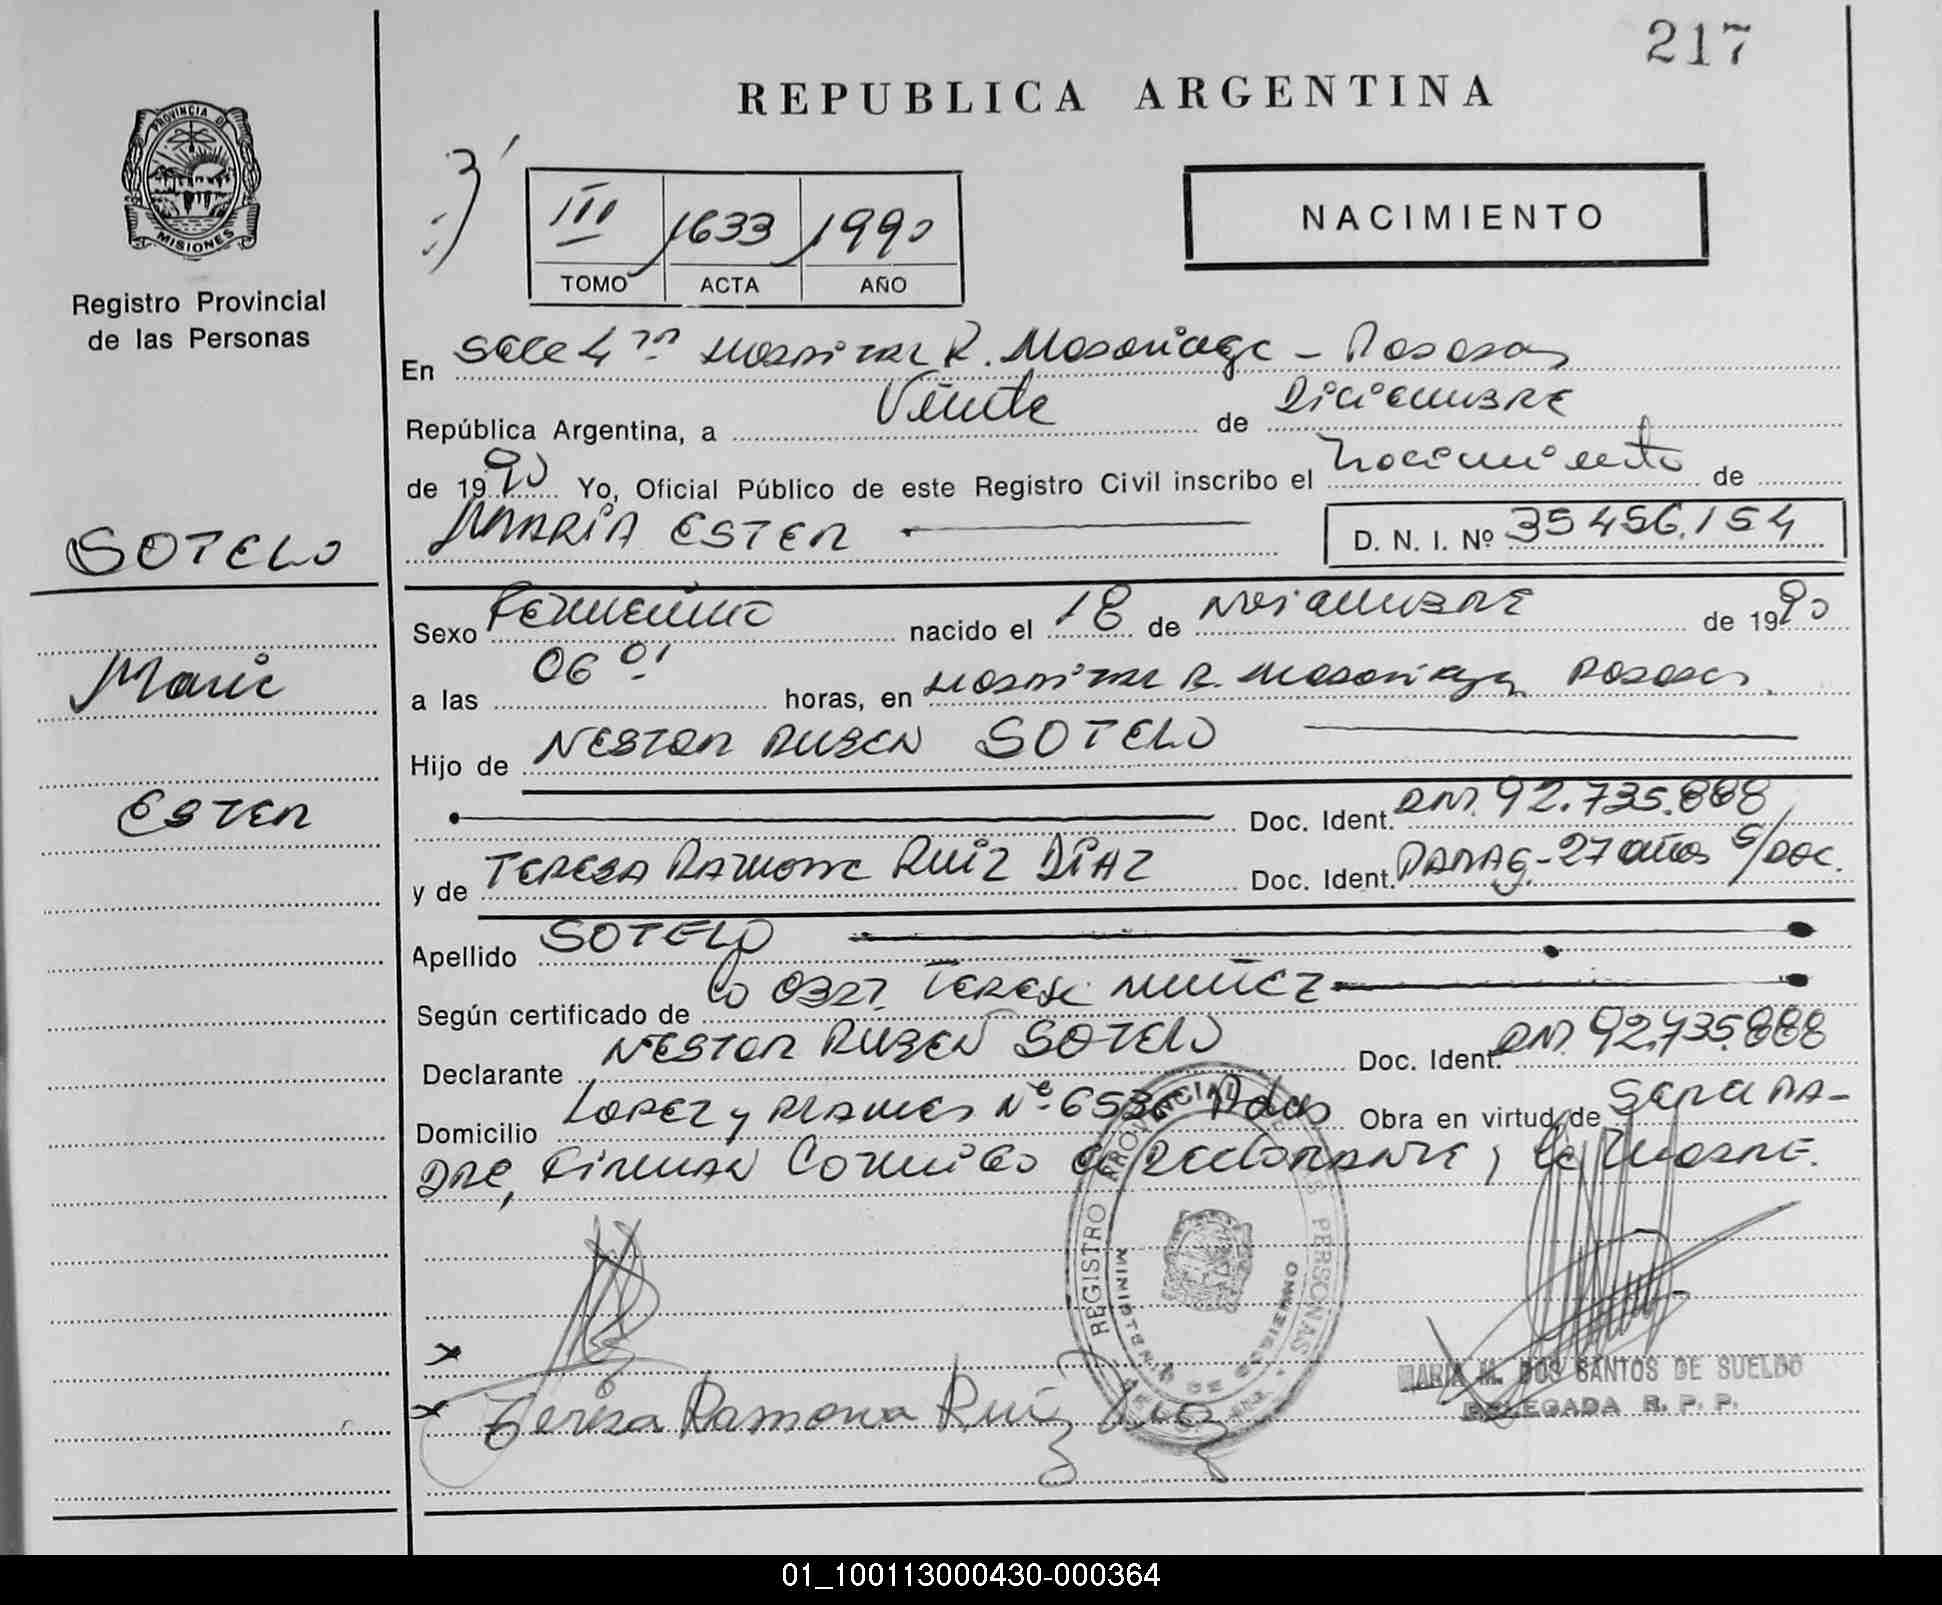 217
REPUBLICA ARGENTINA
PROVINCIA DE
MISIONES
Registro Provincial
de las Personas
III 1633 1990
TOMO ACTA AÑO
NACIMIENTO
En Hospital R. Madariaga - Posadas
República Argentina, a Veinte de Diciembre
de 1990 Yo, Oficial Público de este Registro Civil inscribo el Nacimiento de
MARIA ESTER D. N. I. Nº 35456.154
SOTELO
Maria
Ester
Sexo Femenino nacido el 18 de Noviembre de 1990
a las 06 01 horas, en Hospital R. Madariaga Posadas.
Hijo de NESTOR RUBEN SOTELO
Doc. Ident. DNI. 92.735.888
y de TERESA RAMONA RUIZ DIAZ Doc. Ident. PARAG.-27 años S/DOC.
Apellido SOTELO
Según certificado de 0327 TERESA NUÑEZ
Declarante NESTOR RUBEN SOTELO Doc. Ident. DNI. 92.735.888
Domicilio LOPEZ y PLANES Nº 6536 Pdas Obra en virtud de Ser el PA-
DRE, FIRMAN Conmigo el DECLARANTE y la MADRE.
REGISTRO PROVINCIAL DE LAS PERSONAS
MINISTERIO DE GOBIERNO
Teresa Ramona Ruiz Diaz
MARIA M. DOS SANTOS DE SUELDO
DELEGADA R. P. P.
01_100113000430-000364